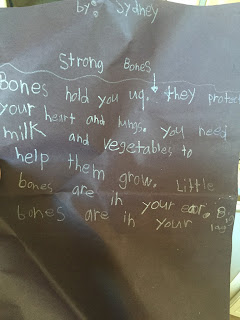 by: Sydney
Strong Bones
Bones hold you up. they protect
your heart and lungs. you need
milk and vegetables to
help them grow. Little
bones are in your ear. Big
bones are in your leg.